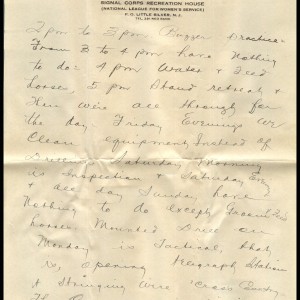 SIGNAL CORPS RECREATION HOUSE
(NATIONAL LEAGUE FOR WOMEN'S SERVICE)
P. O. LITTLE SILVER, N. J.
2 pm to 3 pm Buzzer Practice
From 3 to 4 pm have Nothing
to do. 4 pm Water & Feed
horses, 5 pm Stand retreat &
then were all through for
the day Friday Evenings we
Clean equipment, Instead of
Drilling Saturday Morning
is Inspection & Saturday
& all day Sunday have
Nothing to do except
horses Mounted Drill on
Monday is Tactical, that
is, Opening telegraph Station
& Stringing Wire